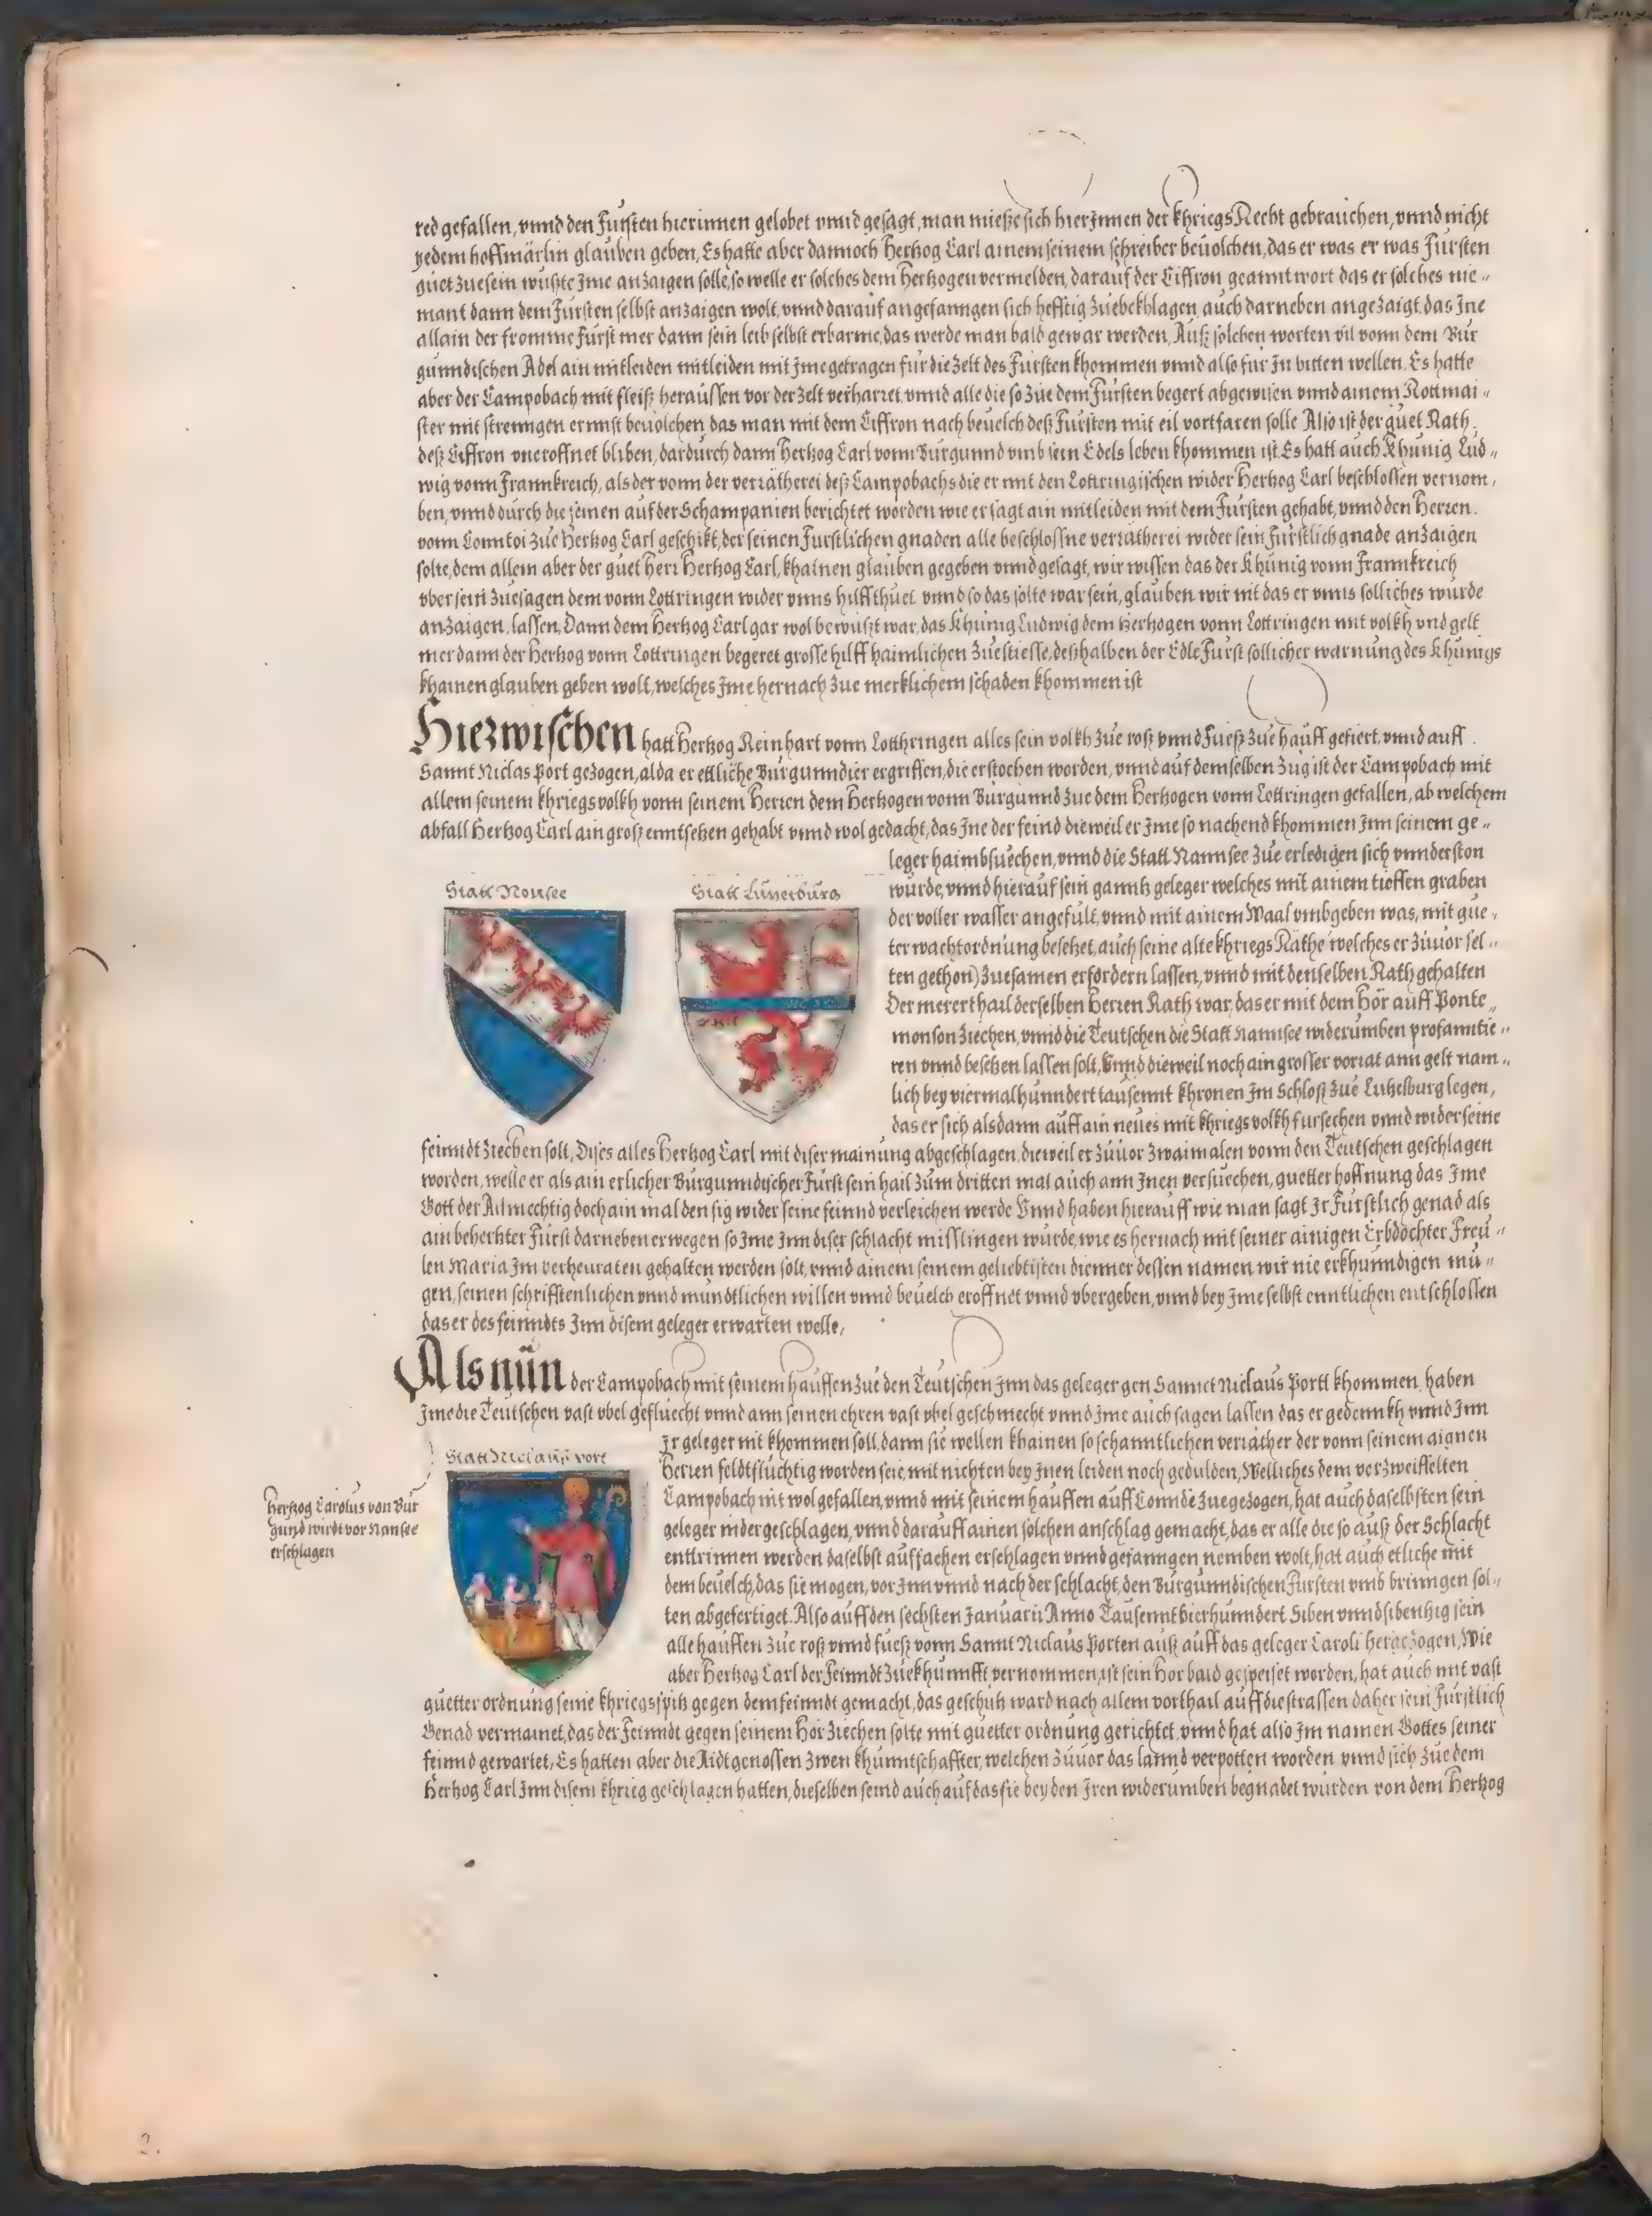 red gefallen, vnnd den Fursten hierinnen gelobet vnnd gesagt, man mieße sich hierJnnen der khriegs Recht gebrauchen, vnnd nicht
yedem hoffmärlin glauben geben, Es hatte aber dannoch Hertzog Carl ainem seinem schreiber beuolchen, das er was er was Fursten
guet zuesein wußte Jme anzaigen solle, so welle er solches dem Hertzogen vermelden, darauf der Ciffron geanntwort das er solches nie„
mant dann dem Fursten selbst anzaigen wolt, vnnd darauf angefanngen sich hefftig zuebekhlagen, auch darneben angezaigt, das Jne
allain der fromme Furst mer dann sein leib selbst erbarme, das werde man bald gewar werden, Auß solchen worten vil vonn dem Bur
gunndischen Adel ain mitleiden mitleiden mit Jme getragen fur die Zelt des Fursten khommen vnnd also fur Jn bitten wellen. Es hatte
aber der Campobach mit fleiß heraussen vor der Zelt verharret vnnd alle die so zue dem Fursten begert abgewisen vnnd ainem Rottmai„
ster mit strenngen ernnst beuolchen das man mit dem Ciffron nach beuelch deß Fursten mit eil vortfaren solle Also ist der guet Rath
deß Ciffron vneroffnet bliben, dardurch dann Hertzog Carl vonn Burgunnd vmb sein Edels leben khommen ist. Es hatt auch Khunig Lud„
wig vonn Frannkreich, als der vonn der verrätherei deß Campobachs die er mit den Lottringischen wider Hertzog Carl beschlossen vernom,
ben, vnnd durch die seinen auf der Schampanien berichtet worden wie er sagt ain mitleiden mit dem Fursten gehabt, vnnd den Herren.
vonn Conntoi zue Hertzog Carl geschikt, der seinen Furstlichen gnaden alle beschlossne verrätherei wider sein Furstlich gnade anzaigen
solte, dem allem aber der guet herr Hertzog Carl, khainen glauben gegeben vnnd gesagt, wir wissen das der Khunig vonn Frannkreich
vber sein zuesagen dem vonn Lottringen wider vnns hilff thuet vnnd so das solte war sein, glauben wir nit das er vnns solliches wurde
anzaigen, lassen, Dann dem Hertzog Carl gar wol bewußt war, das Khunig Ludwig dem Hertzogen vonn Lottringen mit volkh vnd gelt
mer dann der Hertzog vonn Lottringen begeret grosse hilff haimlichen zuestiesse, deßhalben der Edle Furst sollicher warnung des Khunigs
khainen glauben geben wolt, welches Jme hernach zue merklichem schaden khommen ist
Hiezwischen hatt Hertzog Reinhart vonn Lotthringen alles sein volkh zue roß vnnd Fueß zue hauff gefiert, vnnd auff
Sannt Niclas Port gezogen, alda er ettliche Burgunndier ergriffen, die erstochen worden, vnnd auf demselben Zug ist der Campobach mit
allem seinem khriegsvolkh vonn seinem Herren dem Hertzogen vonn Burgunnd zue dem Hertzogen vonn Lottringen gefallen, ab welchem
abfall Hertzog Carl ain groß enntsetzen gehabt vnnd wol gedacht, das Jne der feind dieweil er Jme so nachend khommen Jnn seinem ge„
leger haimbsuechen, vnnd die Statt Nannsee zue erledigen sich vnnderston
wurde, vnnd hierauf sein ganntz geleger welches mit ainem tieffen graben
der voller wasser angefult, vnnd mit ainem Waal vmbgeben was, mit gue„
ter wachtordnung besetzet, auch seine alte khriegs Räthe welches er zuuor sel„
ten gethon) zuesamen erfordern lassen, vnnd mit denselben Rath gehalten
Der merer thail derselben Herren Rath war, das er mit dem Hör auff Ponte„
monson ziechen, vnnd die Teutschen die Statt Nannsee widerumben profanntie„
ren vnnd besetzen lassen solt, Vnnd dieweil noch ain grosser vorrat ann gelt nam„
lich bey viermalhunndert tausennt khronen Jm Schloß zue Lutzelburg legen,
das er sich alsdann auff ain neues mit khriegsvolkh fursechen vnnd wider seine
Statt Nansee
Statt Lünerburg
feinndt ziechen solt, Dises alles Hertzog Carl mit diser mainung abgeschlagen, dieweil er zuuor zwaimalen vonn den Teutschen geschlagen
worden, welle er als ain erlicher Burgunndischer Furst sein hail zum dritten mal auch ann Jnen versuechen, guetter hoffnung das Jme
Gott der Allmechtig doch ain mal den sig wider seine feinnd verleichen werde Vnnd haben hierauff wie man sagt Jr Furstlich genad als
ain behertzter Furst darneben erwegen so Jme Jnn diser schlacht misslingen wurde, wie es hernach mit seiner ainigen Erbdochter Freu„
len Maria Jm verheuraten gehalten werden solt, vnnd ainem seinem geliebtisten dienner dessen namen wir nie erkhunndigen mu„
gen, seinen schrifftenlichen vnnd mundtlichen willen vnnd beuelch eroffnet vnnd vbergeben, vnnd bey Jme selbst enntlichen entschlossen
das er des feinndts Jnn disem geleger erwarten welle,
Als nun der Campobach mit seinem hauffen zue den Teutschen Jnn das geleger gen Sannct Niclaus Portt khommen, haben
Jme die Teutschen vast vbel gefluecht vnnd ann seinen ehren vast vbel geschmecht vnnd Jme auch sagen lassen das er gedennkh vnnd Jnn
Jr geleger nit khommen soll, dann sie wellen khainen so schanntlichen verräther der vonn seinem aignen
Herren feldtfluchtig worden seie, mit nichten bey Jnen leiden noch gedulden, Welliches dem verzweiffelten
Campobach nit wol gefallen, vnnd mit seinem hauffen auff Connde zuegezogen, hat auch daselbsten sein
geleger nidergeschlagen, vnnd darauff ainen solchen anschlag gemacht, das er alle die so auß der Schlacht
enttrinnen werden daselbst auffachen erschlagen vnnd gefanngen nemben wolt, hat auch etliche mit
dem beuelch, das sie mogen, vor Jnn vnnd nach der schlacht, den Burgunndischen Fursten vmb brinngen sol„
ten abgefertiget. Also auff den sechsten Januarii Anno Tausennt vierhunndert Siben vnnd sibentzig sein
alle hauffen zue roß vnnd fueß vonn Sannt Niclaus Porten auß auff das geleger Caroli hergezogen, Wie
aber Hertzog Carl der Feinndt zuekhunnfft vernommen, ist sein Hör bald gespeiset worden, hat auch mit vast
Statt Niclauß port
Hertzog Carolus von Bur
gund wirdt vor Nansee
erschlagen
guetter ordnung seine khriegsspitz gegen dem feinndt gemacht, das geschutz ward nach allem vorthail auff die strassen daher sein Furstlich
Genad vermainet, das der Feinndt gegen seinem Hör ziechen solte mit guetter ordnung gerichtet, vnnd hat also Jm namen Gottes seiner
feinnd gewartet, Es hatten aber die Aidtgenossen zwen khunntschaffter, welchen zuuor das lannd verpotten worden vnnd sich zue dem
Hertzog Carl Jnn disem khrieg geschlagen hatten, dieselben seind auch auf das sie bey den Jren widerumben begnadet wurden von dem Hertzog